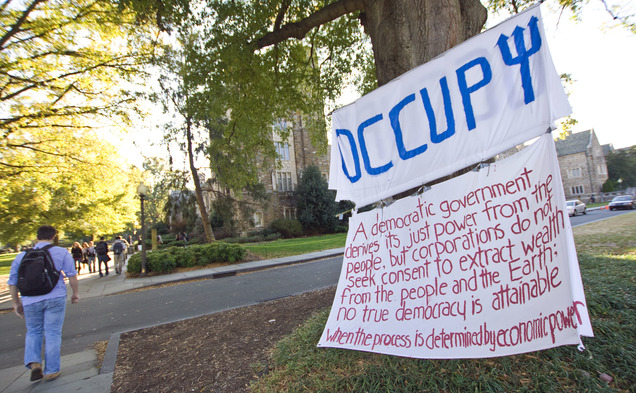 OCCUPY
A democratic government
derives its just power from the
people, but corporations do not
seek consent to extract wealth
from the people and the Earth;
no true democracy is attainable
when the process is determined by economic power